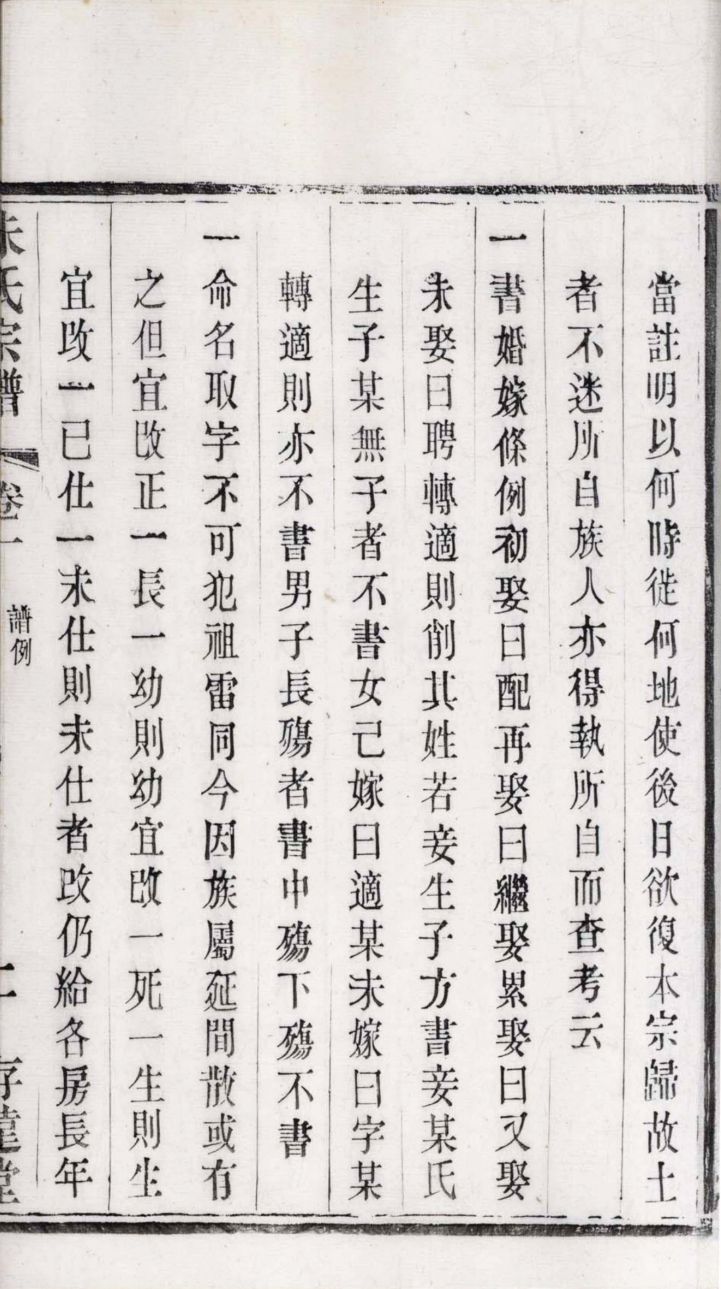 當註明以何時徙何地使後日欲復本宗歸故土
者不迷所自族人亦得執所自而查考云
一書婚嫁條例初娶曰配再娶曰繼娶累娶曰又娶
未娶曰聘轉適則削其姓若妾生子方書妾某氏
生子某無子者不書女己嫁曰適某未嫁曰字某
轉適則亦不書男子長殤者書中殤下殤不書
一命名取字不可犯祖雷同今因族屬延間散或有
之但宜改正一長一幼則幼宜改一死一生則生
宜改一已仕一未仕則未仕者改仍給各房長年
朱氏宗譜 卷一 譜例 二